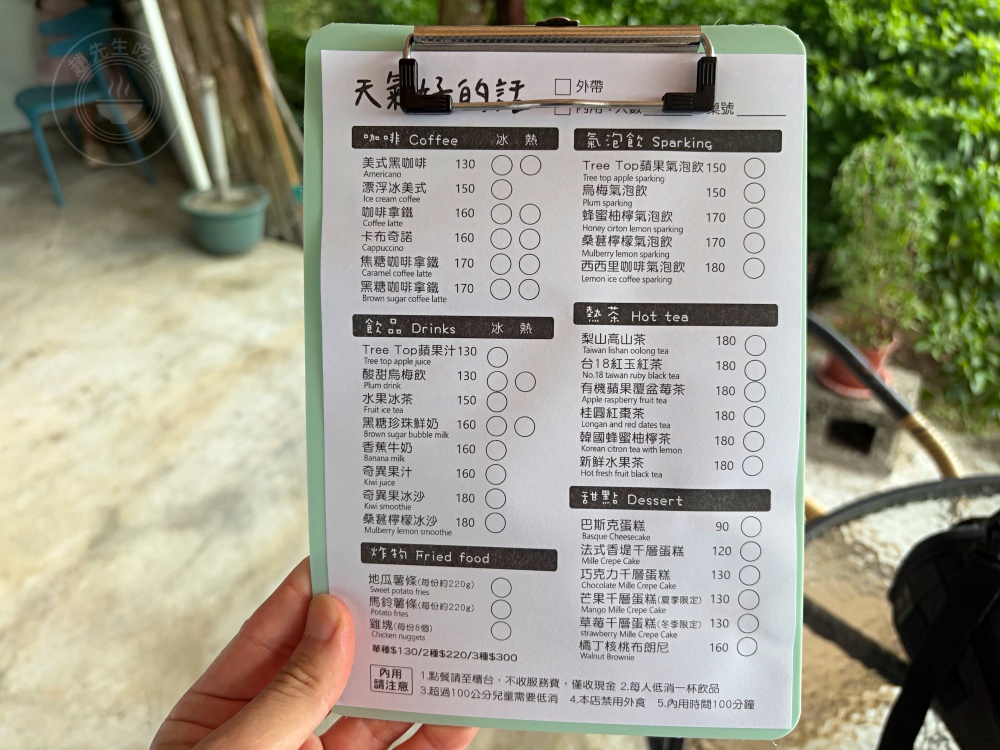 鐵先生吃
天氣好的話
外帶
內用 人數 桌號
咖啡 Coffee 冰 熱
美式黑咖啡 130
Americano
漂浮冰美式 150
Ice cream coffee
咖啡拿鐵 160
Coffee latte
卡布奇諾 160
Cappuccino
焦糖咖啡拿鐵 170
Caramel coffee latte
黑糖咖啡拿鐵 170
Brown sugar coffee latte
飲品 Drinks 冰 熱
Tree Top蘋果汁 130
Tree top apple juice
酸甜烏梅飲 130
Plum drink
水果冰茶 150
Fruit ice tea
黑糖珍珠鮮奶 160
Brown sugar bubble milk
香蕉牛奶 160
Banana milk
奇異果汁 160
Kiwi juice
奇異果冰沙 180
Kiwi smoothie
桑葚檸檬冰沙 180
Mulberry lemon smoothie
炸物 Fried food
地瓜薯條(每份約220g)
Sweet potato fries
馬鈴薯條(每份約220g)
Potato fries
雞塊(每份8個)
Chicken nuggets
單種$130/2種$220/3種$300
氣泡飲 Sparking
Tree Top蘋果氣泡飲 150
Tree top apple sparking
烏梅氣泡飲 150
Plum sparking
蜂蜜柚檸氣泡飲 170
Honey cirton lemon sparking
桑葚檸檬氣泡飲 170
Mulberry lemon sparking
西西里咖啡氣泡飲 180
Lemon ice coffee sparking
熱茶 Hot tea
梨山高山茶 180
Taiwan lishan oolong tea
台18紅玉紅茶 180
No.18 taiwan ruby black tea
有機蘋果覆盆莓茶 180
Apple raspberry fruit tea
桂圓紅棗茶 180
Longan and red dates tea
韓國蜂蜜柚檸茶 180
Korean citron tea with lemon
新鮮水果茶 180
Hot fresh fruit black tea
甜點 Dessert
巴斯克蛋糕 90
Basque Cheesecake
法式香堤千層蛋糕 120
Mille Crepe Cake
巧克力千層蛋糕 130
Chocolate Mille Crepe Cake
芒果千層蛋糕(夏季限定) 130
Mango Mille Crepe Cake
草莓千層蛋糕(冬季限定) 130
strawberry Mille Crepe Cake
橘丁核桃布朗尼 160
Walnut Brownie
內用
請注意
1.點餐請至櫃台，不收服務費，僅收現金 2.每人低消一杯飲品
3.超過100公分兒童需要低消 4.本店禁用外食 5.內用時間100分鐘